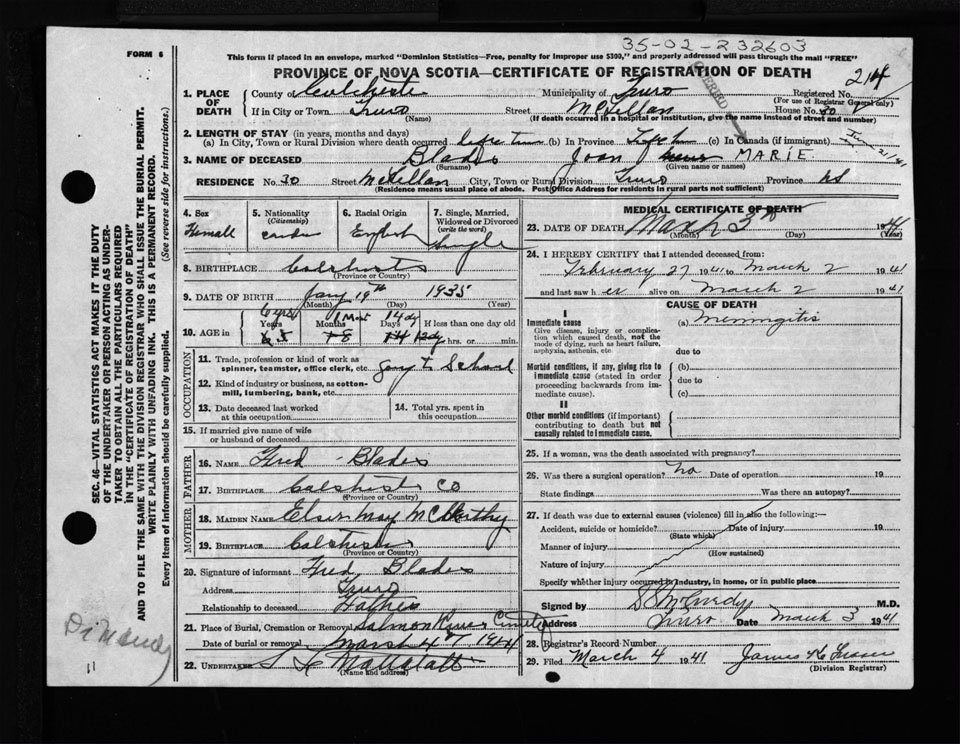 35-02-232603
FORM 6
This form if placed in an envelope, marked "Dominion Statistics—Free, penalty for improper use $300," and properly addressed will pass through the mail "FREE"
PROVINCE OF NOVA SCOTIA—CERTIFICATE OF REGISTRATION OF DEATH
1. PLACE OF DEATH County of Colcheste Municipality of Truro Registered No. 214
(For use of Registrar General only)
If in City or Town Truro Street McLellan House No. 30
(Name) (If death occurred in a hospital or institution, give the name instead of street and number)
2. LENGTH OF STAY (in years, months and days)
(a) In City, Town or Rural Division where death occurred life time (b) In Province (c) In Canada (if immigrant)
3. NAME OF DECEASED Blades Joan MARIE
(Surname) (Given name or names)
RESIDENCE No. 30 Street McLellan City, Town or Rural Division Truro Province NS
(Residence means usual place of abode. Post Office Address for residents in rural parts not sufficient)
4. Sex Femall
5. Nationality (Citizenship)
6. Racial Origin English
7. Single, Married, Widowed or Divorced (write the word) Single
8. BIRTHPLACE
(Province or Country)
9. DATE OF BIRTH Jany 19th 1935
(Month) (Day) (Year)
10. AGE in 6 yrs 1 Mont 14 dy
Years Months Days If less than one day old
hrs. or min.
OCCUPATION
11. Trade, profession or kind of work as spinner, teamster, office clerk, etc. going to School
12. Kind of industry or business, as cotton-mill, lumbering, bank, etc.
13. Date deceased last worked at this occupation
14. Total yrs. spent in this occupation
15. If married give name of wife or husband of deceased
FATHER
16. NAME Fred Blades
17. BIRTHPLACE Colchist Co
(Province or Country)
MOTHER
18. MAIDEN NAME Elsie May McCarthy
19. BIRTHPLACE
(Province or Country)
20. Signature of informant Fred Blades
Address Truro
Relationship to deceased Father
21. Place of Burial, Cremation or Removal Salmon River Cemetery
Date of burial or removal March 4 1941
22. UNDERTAKER
(Name and address)
MEDICAL CERTIFICATE OF DEATH
23. DATE OF DEATH March 3rd 1941
(Month) (Day) (Year)
24. I HEREBY CERTIFY that I attended deceased from:
February 27 1941 to March 2 1941
and last saw her alive on March 2 1941
CAUSE OF DEATH
I
Immediate cause (a) meningitis
Give disease, injury or complication which caused death, not the mode of dying, such as heart failure, asphyxia, asthenia, etc.
due to
Morbid conditions, if any, giving rise to immediate cause (stated in order proceeding backwards from immediate cause).
(b)
due to
(c)
II
Other morbid conditions (if important) contributing to death but not causally related to immediate cause.
25. If a woman, was the death associated with pregnancy?
26. Was there a surgical operation? no Date of operation 19
State findings Was there an autopsy?
27. If death was due to external causes (violence) fill in also the following:—
Accident, suicide or homicide? Date of injury 19
(State which)
Manner of injury
(How sustained)
Nature of injury
Specify whether injury occurred in industry, in home, or in public place
Signed by M.D.
Address Truro Date March 3 1941
28. Registrar's Record Number
29. Filed March 4 1941 James
(Division Registrar)
SEC. 46—VITAL STATISTICS ACT MAKES IT THE DUTY
OF THE UNDERTAKER OR PERSON ACTING AS UNDER-
TAKER TO OBTAIN ALL THE PARTICULARS REQUIRED
IN THE "CERTIFICATE OF REGISTRATION OF DEATH"
AND TO FILE THE SAME WITH THE DIVISION REGISTRAR WHO SHALL ISSUE THE BURIAL PERMIT.
WRITE PLAINLY WITH UNFADING INK. THIS IS A PERMANENT RECORD.
Every item of information should be carefully supplied. (See reverse side for instructions.)
11